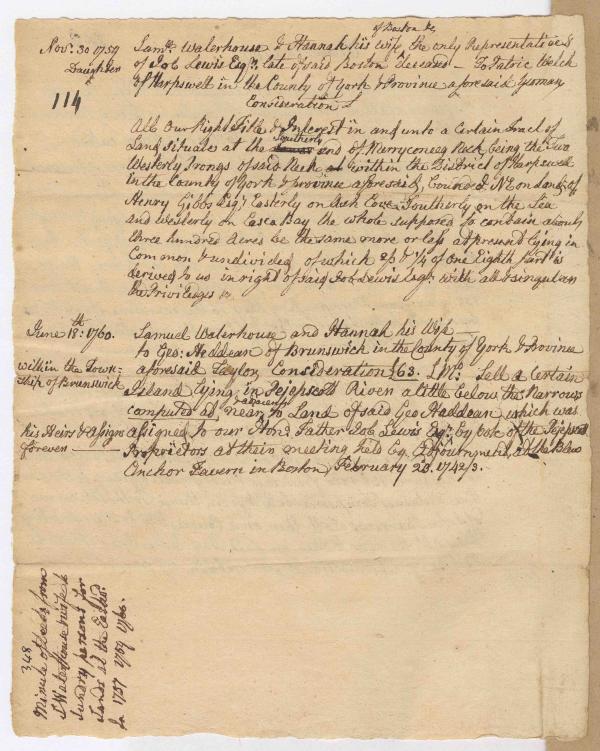 of Boston &c
Nov.r 30 1759 Sam.ll Waterhouse & Hannah his Wife the only Representatives
Daughter of Job Lewis Esq.r late of said Boston deceased — To Patric Welch
114 of Harpswell in the County of York & Province aforesaid Yeoman
Consideration £
All Our Right Title & Interest in and unto a Certain Tract of
Southerly
Land Situate at the end of Merryconeag Neck being the Two
Westerly Prongs of said Neck within the District of Harpswell
in the County of York & province aforesaid, bounded N E on land of
Henry Gibbs Esq.r Easterly on Ash Cove Southerly on the Sea
and Westerly on Casco Bay the whole supposed to contain about
three hundred Acres be the same more or less at present lying in
Common & undivided of which 2/3 of 1/4 of one Eighth part is
derived to us in right of said Job Lewis Esq.r with all & singular
the Priviledges &c
June 18.th 1760. Samuel Waterhouse and Hannah his Wife —
to Geo: Headdean of Brunswick in the County of York & Province
within the Town- aforesaid Taylor Consideration £63. L M.o Sell a Certain
ship of Brunswick Island lying in Pejepscott River a little below the Narrows
adjacent
computed at near to Land of said Geo Haddean which was
his Heirs & Assigns assigned to our Hon.d Father Job Lewis Esq.r by Vote of the Pejepscott
forever — Proprietors at their meeting held by Adjournment, at the Blew
Anchor Tavern in Boston, February 20. 1742/3.
348
Minute of deeds from
S Waterhouse & wife to
sundry persons for
Lands at the Eastw.d
in 1757 1759 1760.